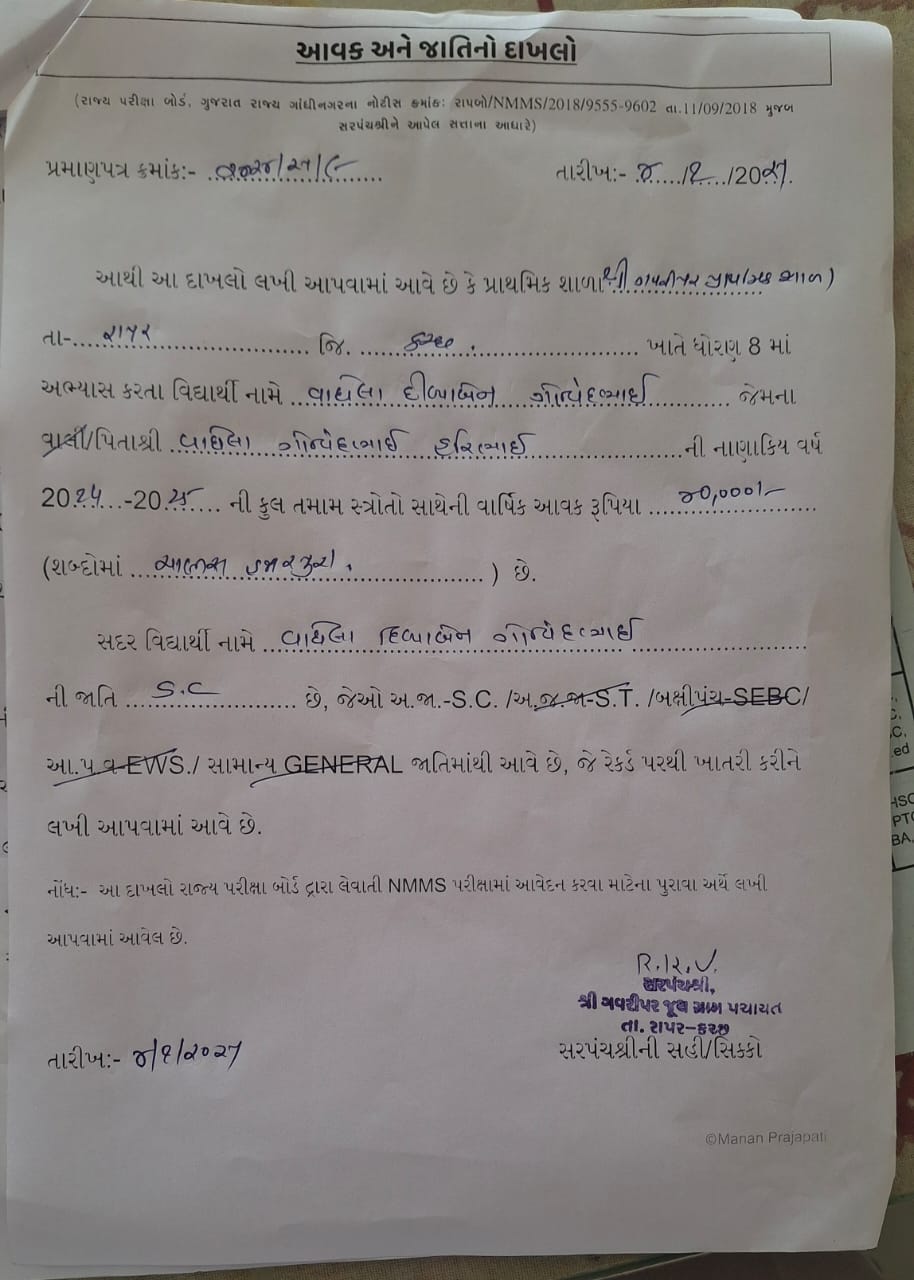 આવક અને જાતિનો દાખલો
(રાજ્ય પરીક્ષા બોર્ડ, ગુજરાત રાજ્ય ગાંધીનગરના નોટીસ ક્રમાંક: રાપબો/NMMS/2018/9555-9602 તા.11/09/2018 મુજબ
સરપંચશ્રીને આપેલ સત્તાના આધારે)
પ્રમાણપત્ર ક્રમાંક:-
તારીખ:- ૪/૨/20૨૫.
આથી આ દાખલો લખી આપવામાં આવે છે કે પ્રાથમિક શાળા શ્રી
તા- રાપર જિ. કચ્છ. ખાતે ધોરણ 8 માં
અભ્યાસ કરતા વિદ્યાર્થી નામે વાઘેલા દીવ્યાબેન ગોવિંદભાઈ જેમના
વાલી/પિતાશ્રી વાઘેલા ગોવિંદભાઈ હરિભાઈ ની નાણાકિય વર્ષ
20૨૪-20૨૫ ની કુલ તમામ સ્ત્રોતો સાથેની વાર્ષિક આવક રૂપિયા ૪૦,૦૦૦/-
(શબ્દોમાં ચાલીસ હજાર પુરા. ) છે.
સદર વિદ્યાર્થી નામે વાઘેલા દિવ્યાબેન ગોવિંદભાઈ
ની જાતિ S.C છે, જેઓ અ.જા.-S.C. /અ.જ.જા-S.T. /બક્ષીપંચ-SEBC/
આ.પ.વ-EWS./ સામાન્ય GENERAL જાતિમાંથી આવે છે, જે રેકર્ડ પરથી ખાતરી કરીને
લખી આપવામાં આવે છે.
નોંધ:- આ દાખલો રાજ્ય પરીક્ષા બોર્ડ દ્વારા લેવાતી NMMS પરીક્ષામાં આવેદન કરવા માટેના પુરાવા અર્થે લખી
આપવામાં આવેલ છે.
R.K.V.
સરપંચશ્રી,
શ્રી ગવરીપર જૂથ ગ્રામ પંચાયત
તા. રાપર-કચ્છ
તારીખ:- ૪/૨/૨૦૨૫
સરપંચશ્રીની સહી/સિક્કો
©Manan Prajapati